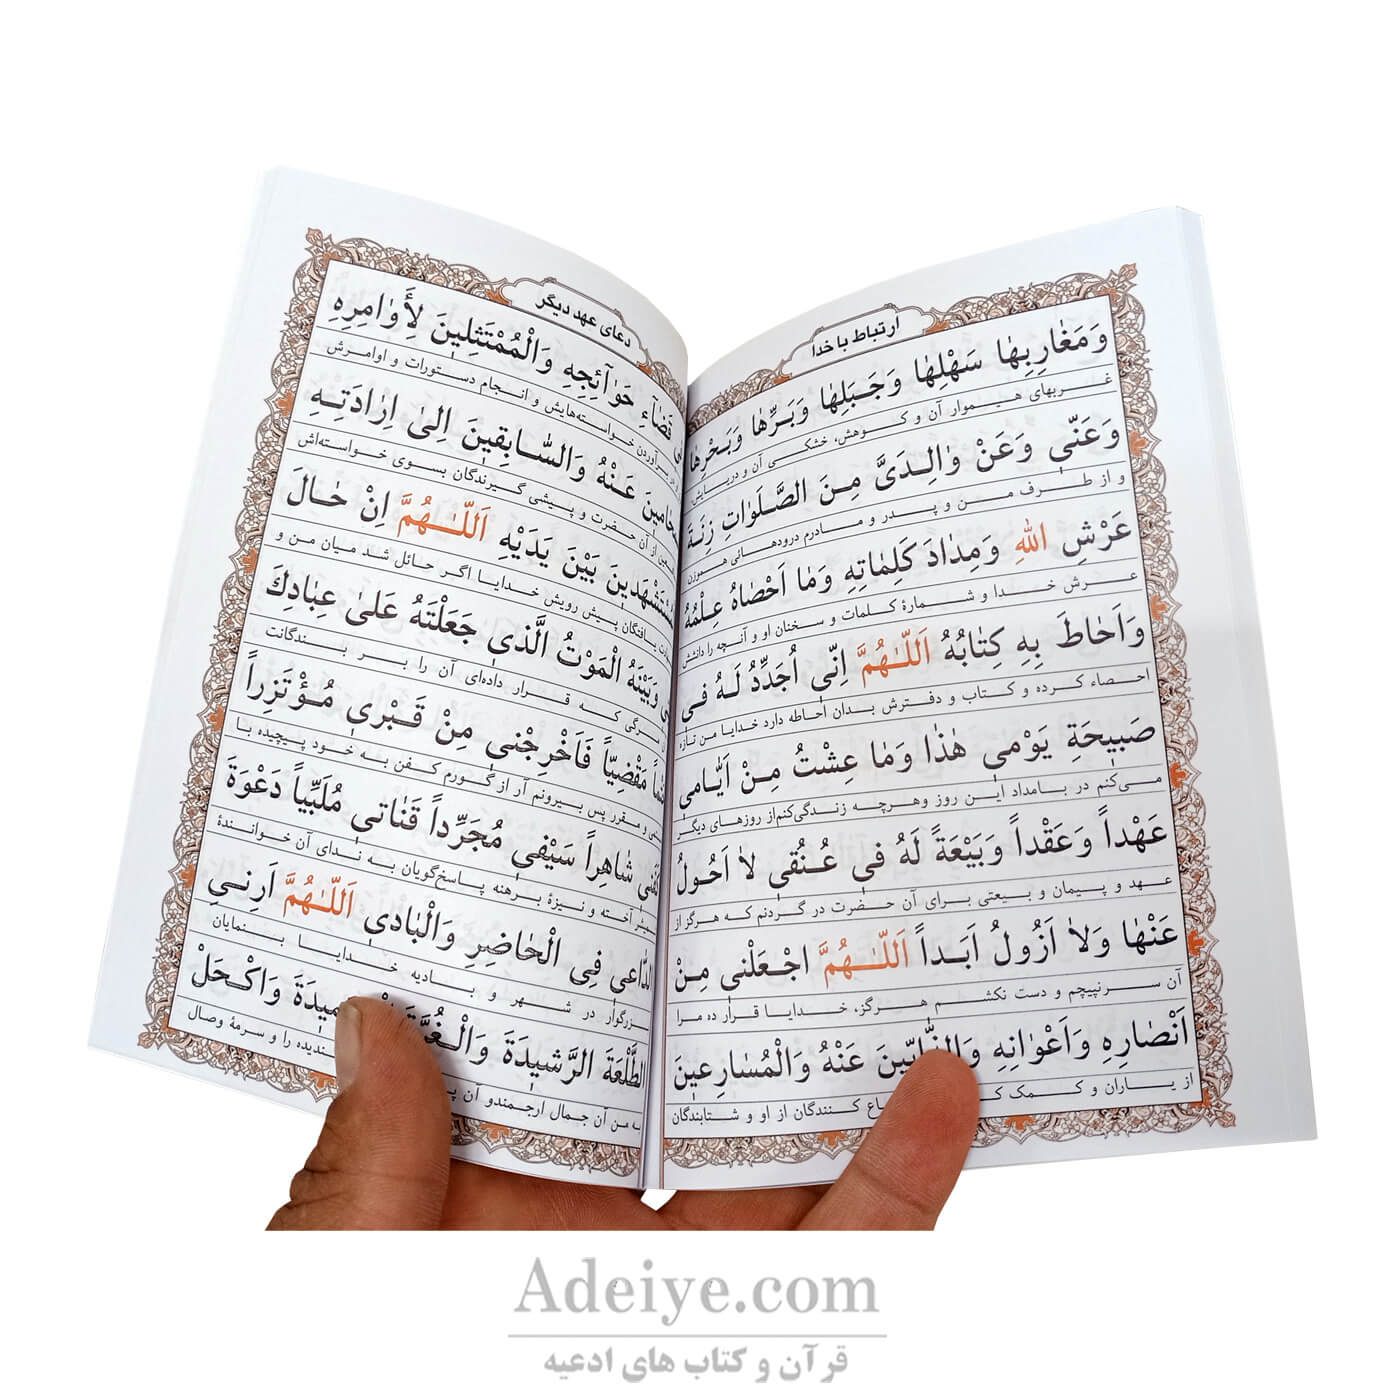 ارتباط با خدا
وَمَغٰارِبِهٰا سَهْلِهٰا وَجَبَلِهٰا وَبَرِّهٰا وَبَحْرِهٰا
غربهای هیموار آن و کوهش، خشکی آن و دریایش
وَعَنّي وَعَنْ وٰالِدَىَّ مِنَ الصَّلَوٰاتِ زِنَةَ
و از طرف من و پدر و مادرم درودهائی هموزن
عَرْشِ اللهِ وَمِدٰادَ كَلِمٰاتِهِ وَمٰا اَحْصٰاهُ عِلْمُهُ
عرش خدا و شمارهٔ کلمات و سخنان او و آنچه را دانشش
وَاَحٰاطَ بِهِ كِتٰابُهُ اَللّـٰهُمَّ اِنّي اُجَدِّدُ لَهُ في
احصاء کرده و کتاب و دفترش بدان احاطه دارد خدایا من تازه
صَبيحَةِ يَوْمي هٰذٰا وَمٰا عِشْتُ مِنْ اَيّٰامي
می‌کنم در بامداد این روز وهرچه زندگی‌کنم‌از روزهای دیگر
عَهْداً وَعَقْداً وَبَيْعَةً لَهُ في عُنُقي لاٰ اَحُولُ
عهد و پیمان و بیعتی برای آن حضرت در گردنم که هرگز از
عَنْهٰا وَلاٰ اَزُولُ اَبَداً اَللّـٰهُمَّ اجْعَلْني مِنْ
آن سرنپیچم و دست نکشم هرگز، خدایا قرار ده مرا
اَنْصٰارِهِ وَاَعْوٰانِهِ وَالذّٰابّينَ عَنْهُ وَالْمُسٰارِعينَ
از یاران و کمک کنندگان از او و شتابندگان
دعای عهد دیگر
قَضٰآءِ حَوٰآئِجِهِ وَالْمُمْتَثِلينَ لِأَوٰامِرِهِ
در برآوردن خواسته‌هایش و انجام دستورات و اوامرش
عَنْهُ وَالسّٰابِقينَ اِلىٰ اِرٰادَتِهِ
از آن حضرت و پیشی گیرندگان بسوی خواسته‌اش
بَيْنَ يَدَيْهِ اَللّـٰهُمَّ اِنْ حٰالَ
یافتگان پیش رویش خدایا اگر حائل شد میان من و
وَبَيْنَهُ الْمَوْتُ الَّذي جَعَلْتَهُ عَلىٰ عِبٰادِكَ
که قرار داده‌ای آن را بر بندگانت
مَقْضِيّاً فَاَخْرِجْني مِنْ قَبْري مُؤْتَزِراً
و مقرر پس بیرونم آر از گورم کفن به خود پیچیده با
شٰاهِراً سَيْفي مُجَرِّداً قَنٰاتي مُلَبِّياً دَعْوَةَ
آخته و نیزهٔ برهنه پاسخ‌گویان به ندای آن خوانندهٔ
الدّٰاعي فِى الْحٰاضِرِ وَالْبٰادي اَللّـٰهُمَّ اَرِنِي
بزرگوار در شهر و بادیه خدایا بنمایان
الطَّلْعَةَ الرَّشيدَةَ وَالْغُرَّةَ وَاكْحَلْ
به من آن جمال ارجمندو آن را و سرمهٔ وصال
Adeiye.com
قرآن و کتاب های ادعیه